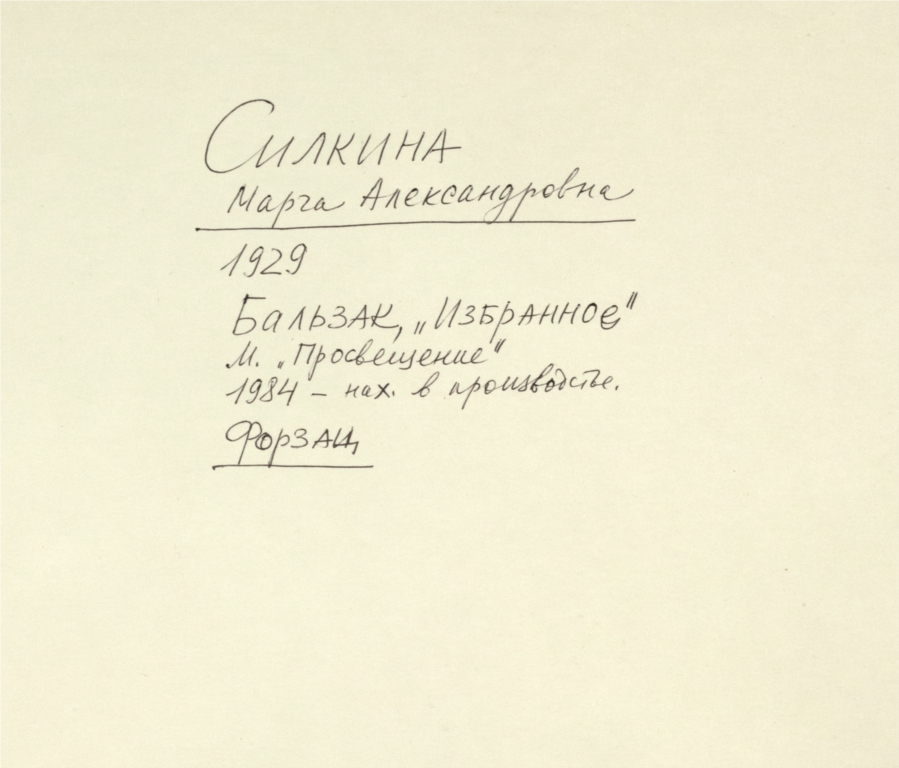 Силкина
Марга Александровна
1929
Бальзак, „Избранное"
М. „Просвещение"
1984 – нах. в производстве.
Форзац